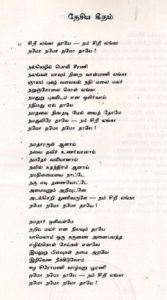 தேசிய கீதம்
சிறீ லங்கா தாயே — நம் சிறீ லங்கா
நமோ நமோ நமோ நமோ தாயே
நல்லெழில் பொலி சீரணி
நலங்கள் யாவும் நிறை வான்மணி லங்கா
ஞாலம் புகழ் வளவயல் நதி மலை மலர்
நறுஞ்சோலை கொள் லங்கா
நமதுறு புகலிடம் என ஒளிர்வாய்
நமதுதி ஏல் தாயே
நமதலை நினதடி மேல் வைத்தோமே
நமதுயிரே தாயே — நம் சிறீ லங்கா
நமோ நமோ நமோ நமோ தாயே
நமதாரருள் ஆனாய்
நவை தவிர் உணர்வானாய்
நமதேர் வலியானாய்
நவில் சுதந்திரம் ஆனாய்
நமதிளமையை நாட்டே
நகு மடி தனையோட்டே
அமைவுறும் அறிவுடனே
அடல்செறி துணிவருளே — நம் சிறீ லங்கா
நமோ நமோ நமோ நமோ தாயே
நமதார் ஒளி வளமே
நறிய மலர் என நிலவும் தாயே
யாமெலாம் ஒரு கருணை அனைபயந்த
எழில்கொள் சேய்கள் எனவே
இயலுறு பிளவுகள் தமை அறவே
இழிவென நீக்கிடுவோம்
ஈழ சிரோமணி வாழ்வுறு பூமணி
நமோ நமோ தாயே — நம் சிறீ லங்கா
நமோ நமோ நமோ நமோ தாயே